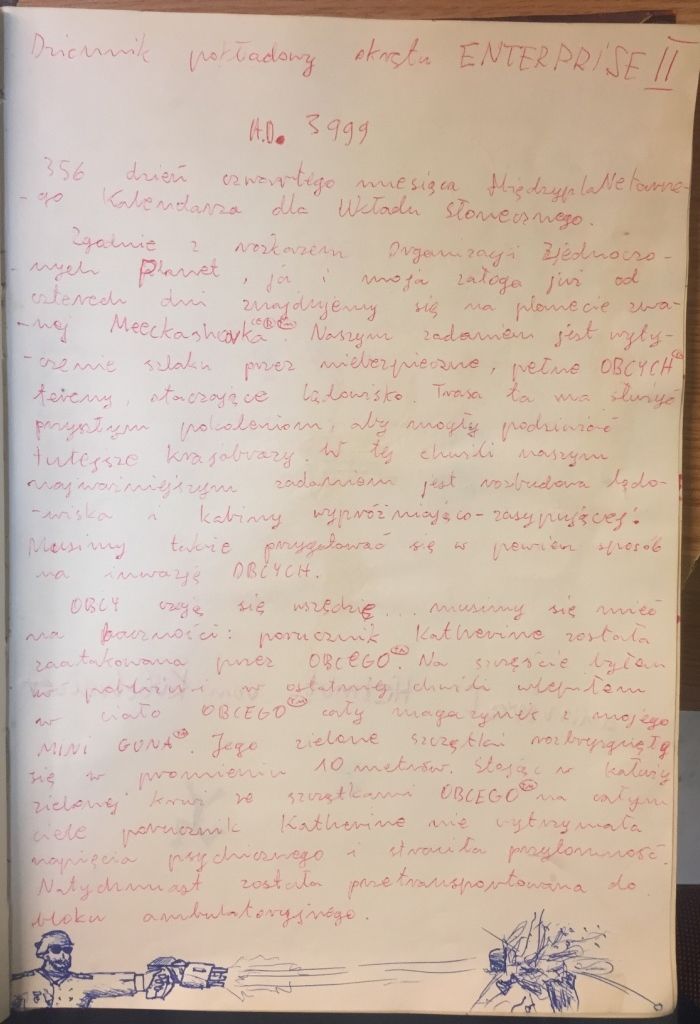 Dziennik pokładowy okrętu ENTERPRISE II
A.D. 3999
356 dzień czwartego miesiąca MiędzyplaNetarne-
-go Kalendarza dla Układu Słonecznego.
Zgodnie z rozkazem Organizacji Zjednoczo-
-nych Planet, ja i moja załoga już od
czterech dni znajdujemy się na planecie zwa-
-nej Meeckashovka. Naszym zadaniem jest wyty-
-czenie szlaku przez niebezpieczne, pełne OBCYCH
tereny, otaczające lądowisko. Trasa ta ma służyć
przyszłym pokoleniom, aby mogły podziwiać
tutejsze krajobrazy. W tej chwili naszym
najważniejszym zadaniem jest rozbudowa lądo-
-wiska i kabiny wypróżniająco-zasypującej.
Musimy także przygotować się w pewien sposób
na inwazję OBCYCH.
OBCY czają się wszędzie... musimy się mieć
na baczności: porucznik Katherine została
zaatakowana przez OBCEGO™. Na szczęście byłem
w pobliżu i w ostatniej chwili wlepiłem
w ciało OBCEGO™ cały magazynek z mojego
MINI GUNA™. Jego zielone szczątki rozbryznęły
się w promieniu 10 metrów. Stojąc w kałuży
zielonej krwi ze szczątkami OBCEGO™ na całym
ciele porucznik Katherine nie wytrzymała
napięcia psychicznego i straciła przytomność.
Natychmiast została przetransportowana do
bloku ambulatoryjnego.